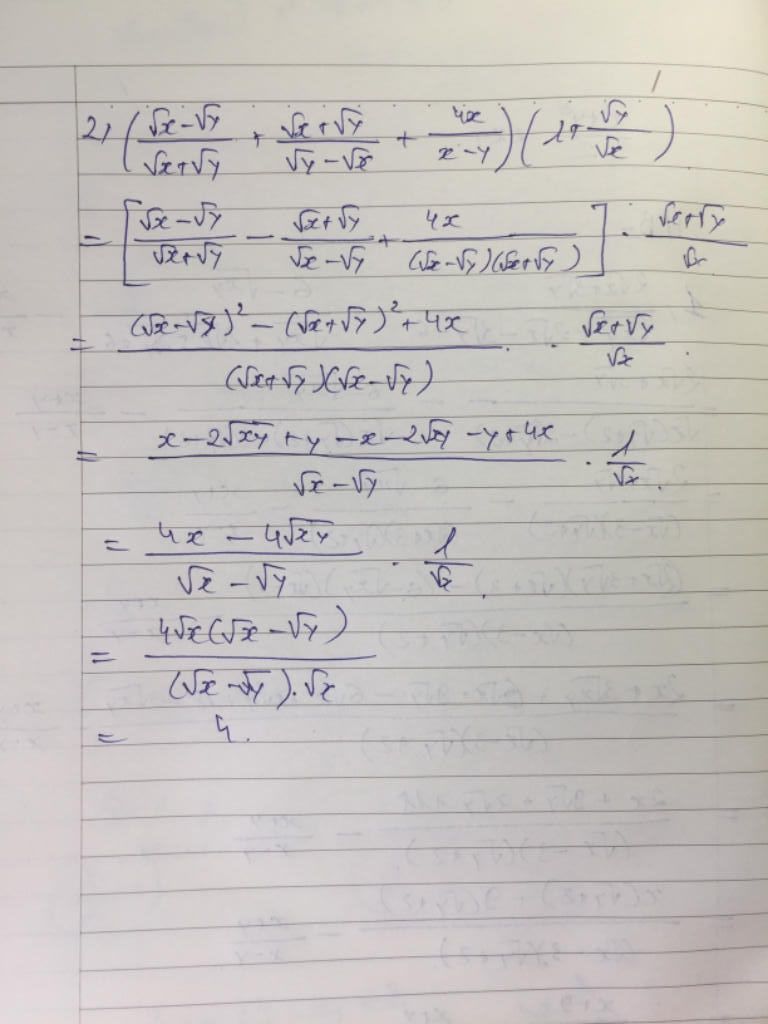 2) ( (√x − √y)/(√x + √y) + (√x + √y)/(√y − √x) + 4x/(x − y) ) ( 1 + √y/√x )
= [ (√x − √y)/(√x + √y) − (√x + √y)/(√x − √y) + 4x/((√x − √y)(√x + √y)) ] · (√x + √y)/√x
= ((√x − √y)² − (√x + √y)² + 4x)/((√x + √y)(√x − √y)) · (√x + √y)/√x
= (x − 2√xy + y − x − 2√xy − y + 4x)/(√x − √y) · 1/√x
= (4x − 4√xy)/(√x − √y) · 1/√x
= 4√x(√x − √y)/((√x − √y).√x)
= 4.